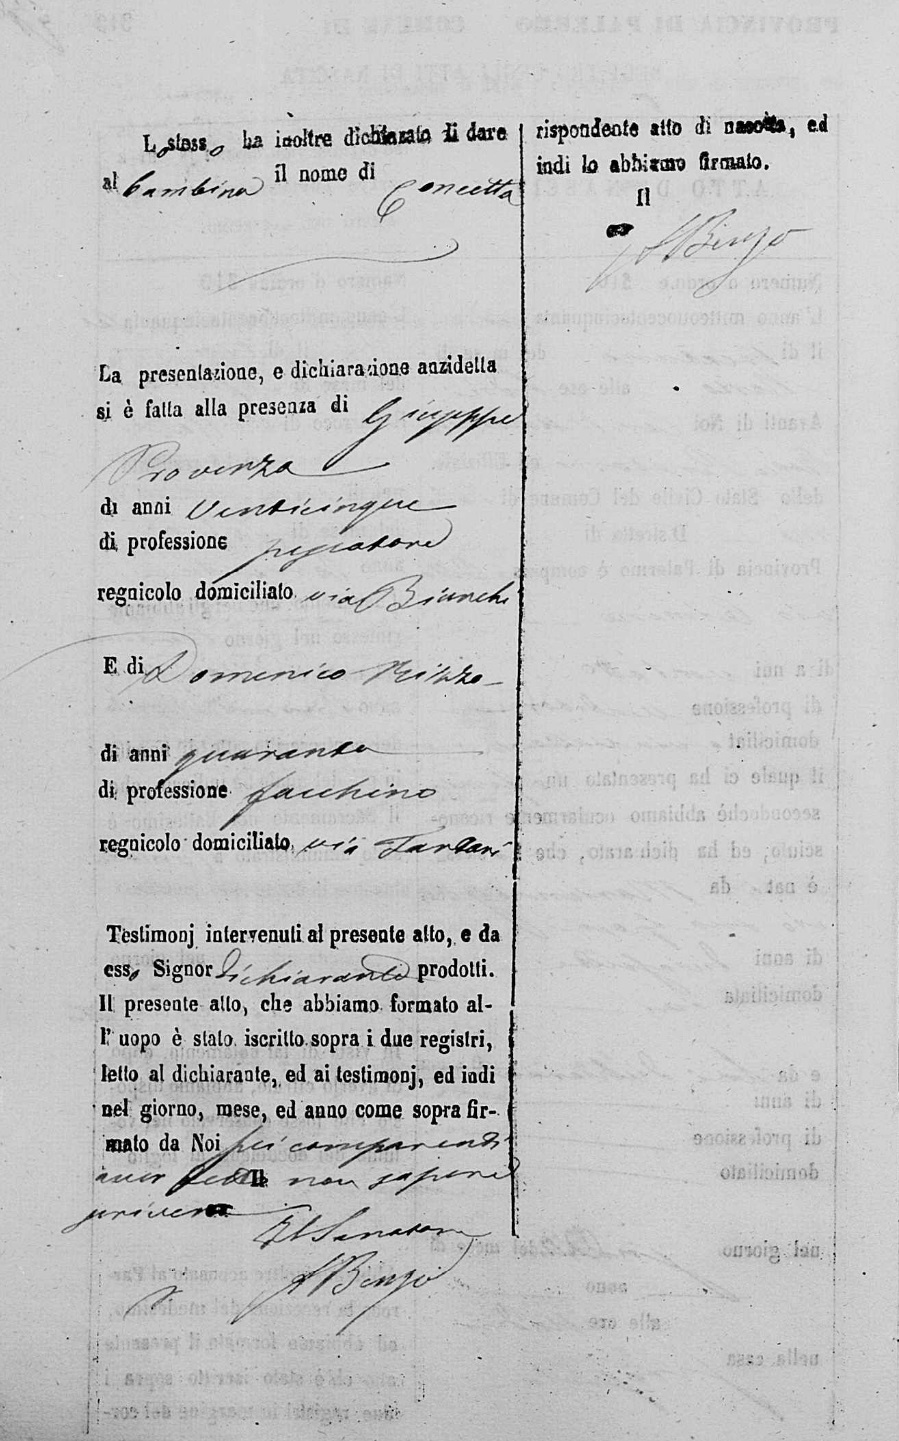 Lo stesso ha inoltre dichiarato di dare
al bambina il nome di Concetta
La presentazione, e dichiarazione anzidetta
si è fatta alla presenza di Giuseppe
Provenza
di anni venticinque
di professione pescatore
regnicolo domiciliato via Bianchi
E di Domenico Rizzo
di anni quaranta
di professione facchino
regnicolo domiciliato via
Testimonj intervenuti al presente atto, e da
esso Signor dichiarante prodotti.
Il presente atto, che abbiamo formato al-
l' uopo è stato iscritto sopra i due registri,
letto al dichiarante, ed ai testimonj, ed indi
nel giorno, mese, ed anno come sopra fir-
mato da Noi comparendi
aver detto non sapere
scrivere
Il Senatore
rispondente atto di nascita, ed
indi lo abbiamo firmato.
Il